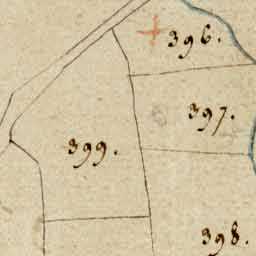 396.
397.
399.
398.